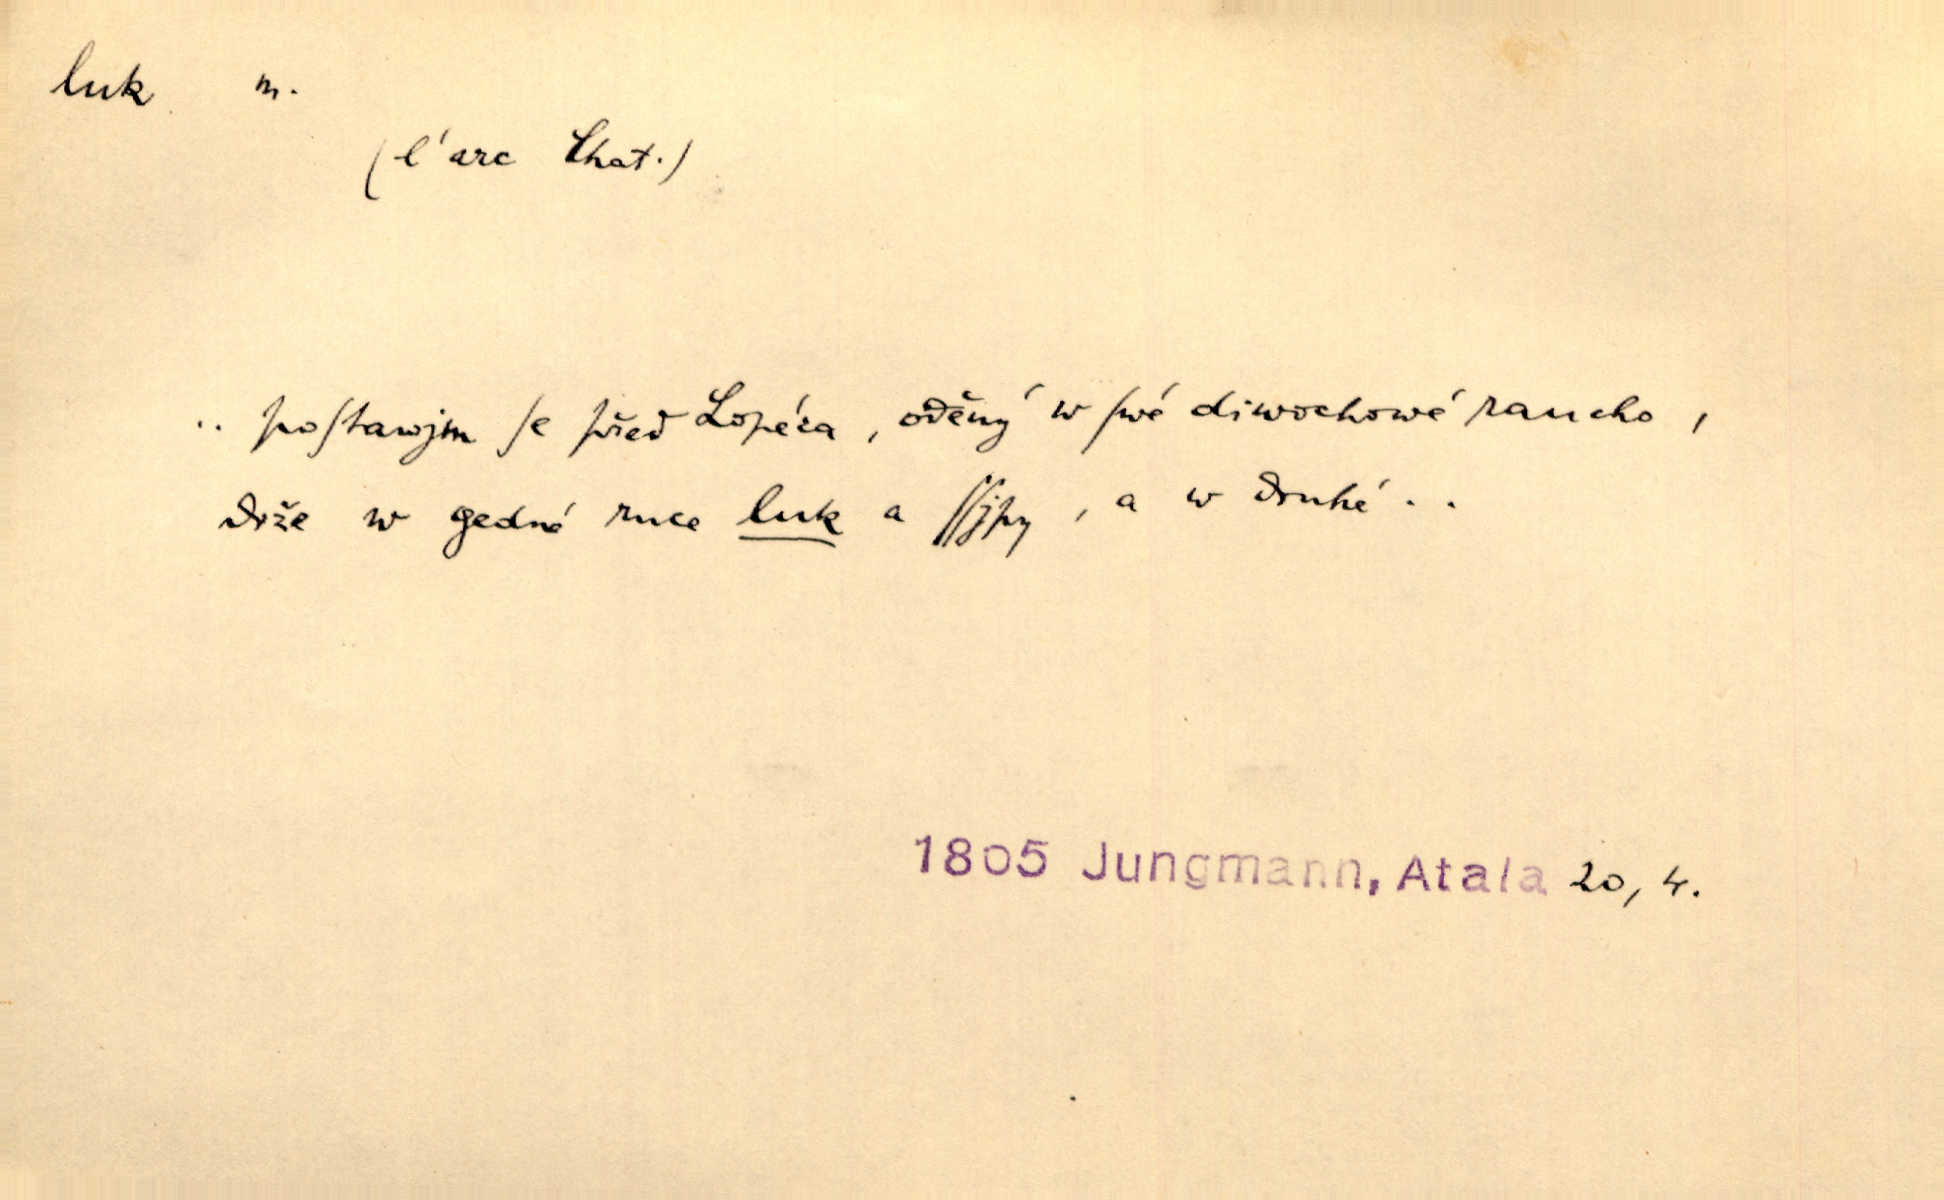 luk m.
(l'arc Chat.)
.. poſtawjm ſe před Lopéza, oděný w ſwé diwochowé raucho,
drže w gedné ruce luk a ſſjpy, a w druhé ..
1805 Jungmann, Atala 20, 4.